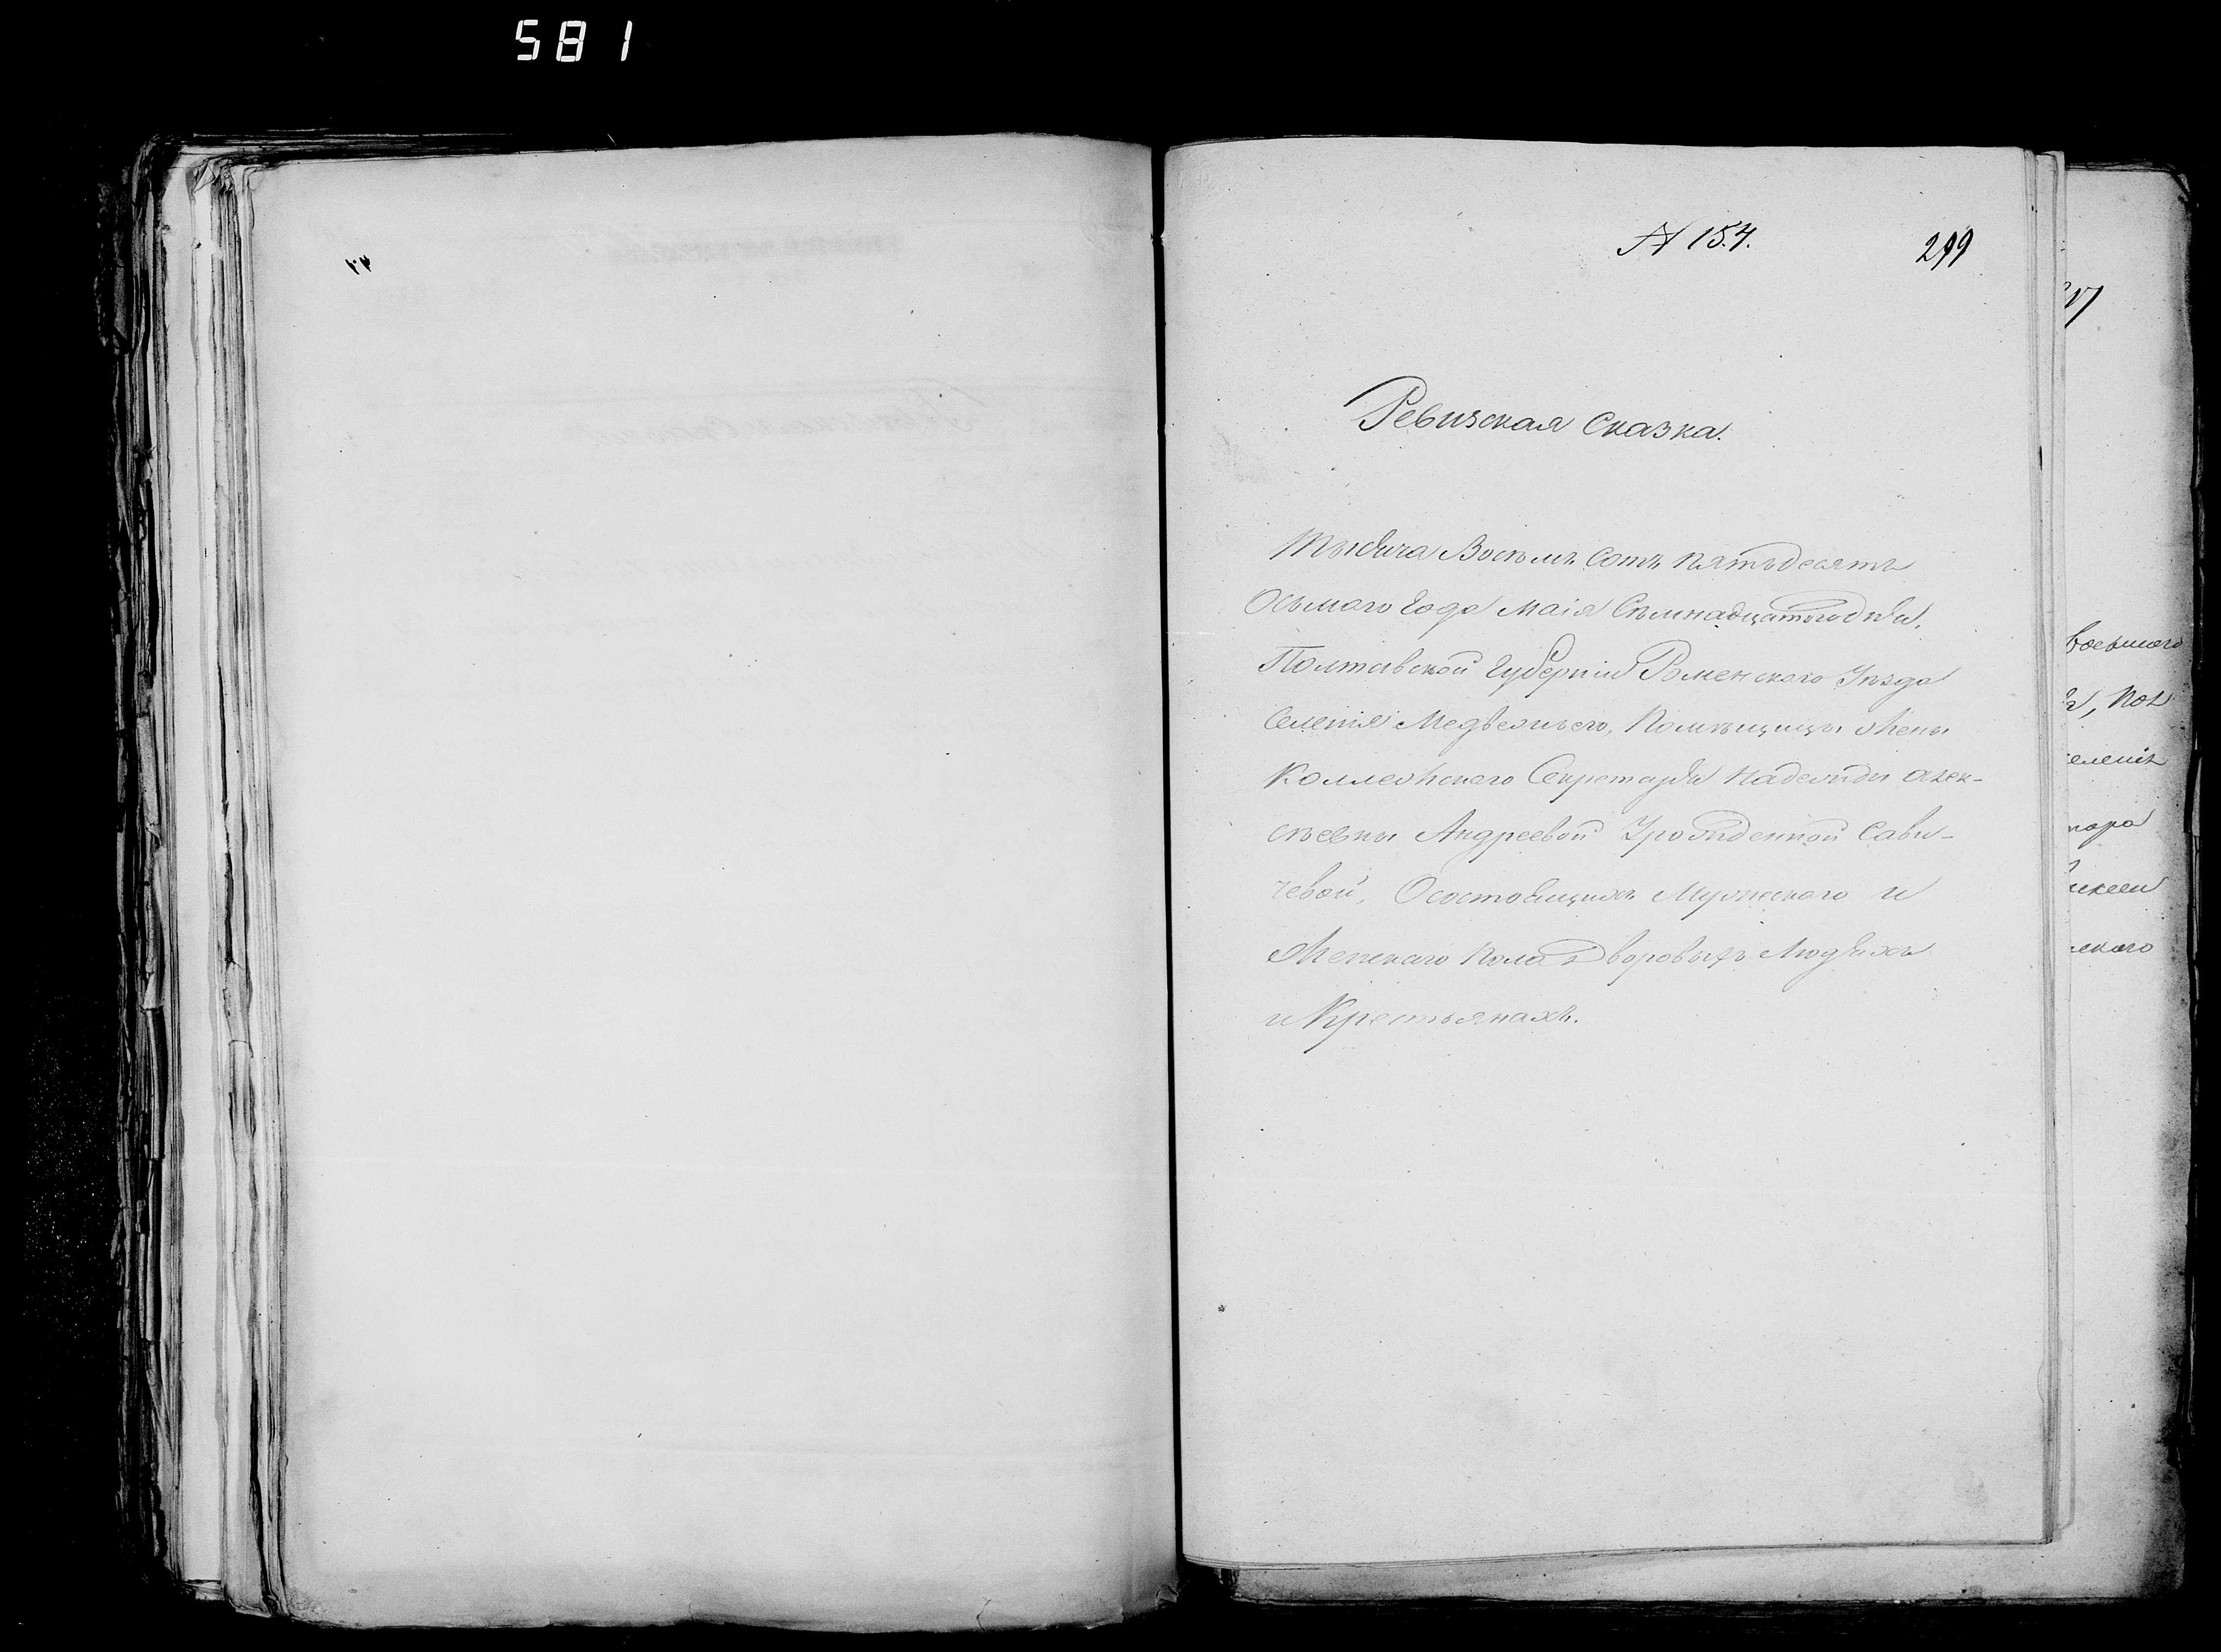 581
№ 154.
299
Ревизская Сказка.
Тысяча Восемь Сотъ Пятьдесятъ
Осьмаго Года Маія Сѣмнадцатого дня.
Полтавской Губерніи Роменского Уѣзда
Селенія Медвежьего, Помѣщицы Жены
Коллежского Секретаря Надежды Алек-
сѣевны Андреевой Урожденной Сави-
чевой, О состоящихъ Мужеского и
Женскаго Пола Дворовыхъ Людяхъ
и Крестьянахъ.
восьмого
, Пол
селенія
ского